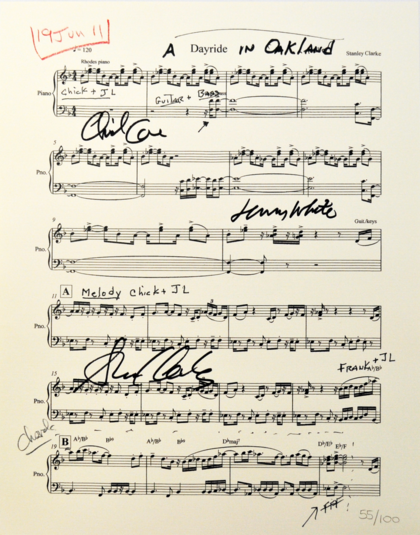 19 Jun 11
♩ = 120
A Dayride IN OAKLAND
Stanley Clarke
Rhodes piano
Piano
Chick + JL
GUITAR + BASS
Chick Corea
5
Pno.
Lenny White
9
Guit/keys
Pno.
A Melody Chick + JL
11
Pno.
Stanley Clarke
FRANK + JL
15
A♭/B♭
Pno.
B
19
A♭/B♭ B♭6 A♭/B♭ B♭6 D♭maj7 D♭/E♭ E♭/F
Pno.
55/100